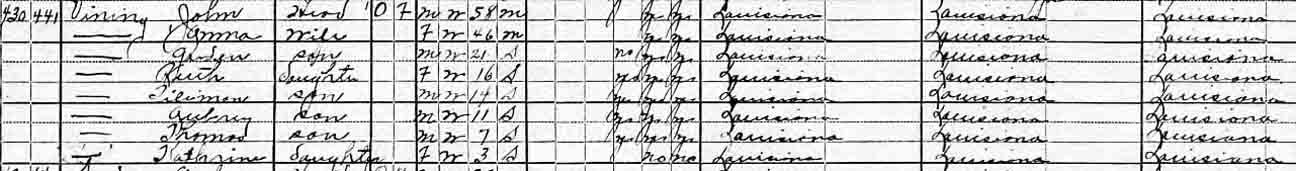 430 441 Vining John Head O F m W 58 m yes yes Louisiana Louisiana Louisiana
Wife F W 46 m yes yes Louisiana Louisiana Louisiana
son m W 21 S no yes yes Louisiana Louisiana Louisiana
Ruth daughter F W 16 S yes yes yes Louisiana Louisiana Louisiana
son m W 14 S yes yes yes Louisiana Louisiana Louisiana
Aubrey son m W 11 S yes yes yes Louisiana Louisiana Louisiana
Thomas son m W 7 S yes yes yes Louisiana Louisiana Louisiana
Kathrine daughter F W 3 S no no Louisiana Louisiana Louisiana